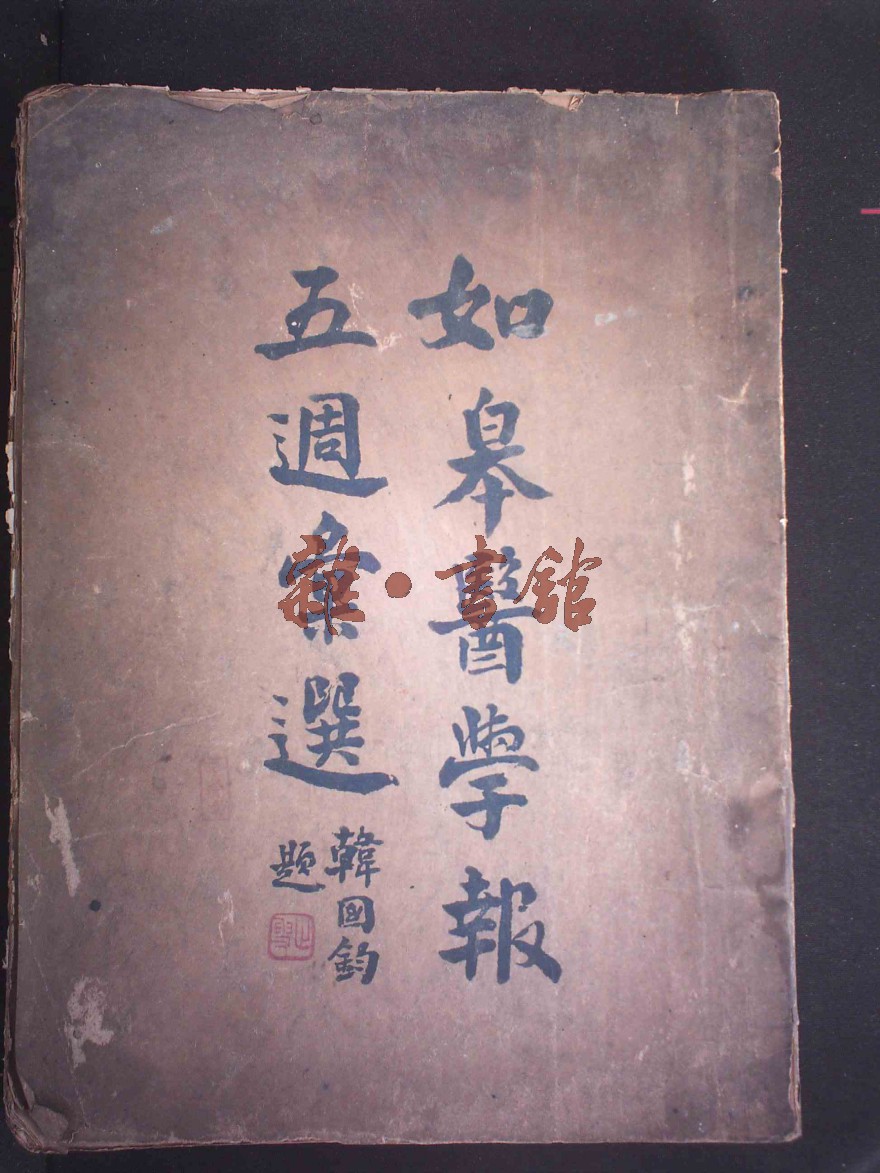 如皋醫學報
五週彙選
韓國鈞
題
雜·書館